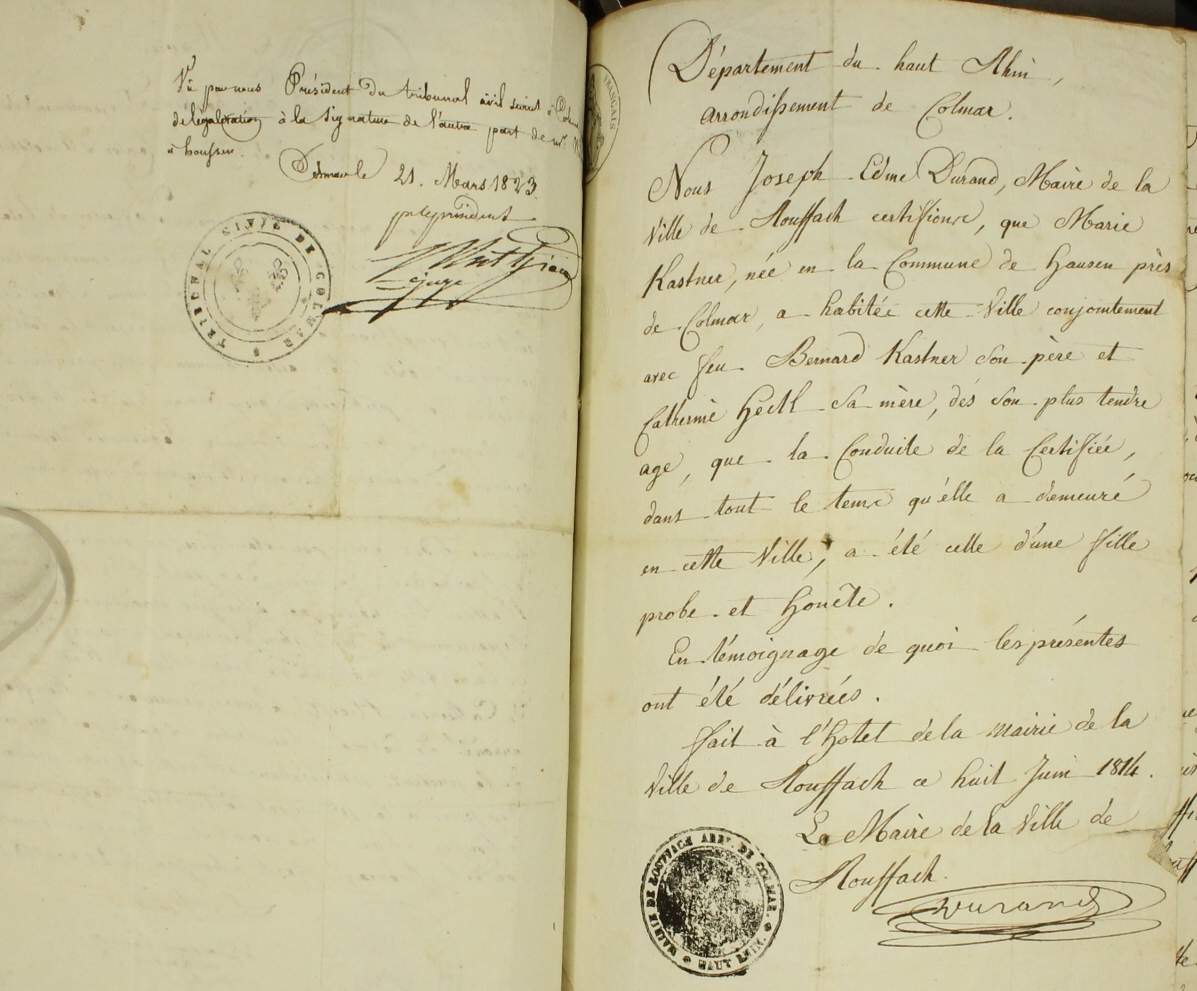 Vu par nous Président du tribunal civil séant à Colmar
de légalisation à la signature de l'autre part de mr.
à houssen.
Colmar le 21. Mars 1823.
ple président
juge
TRIBUNAL CIVIL DE COLMAR
FRANÇAIS
Département du haut Rhin,
arrondissement de Colmar.
Nous Joseph Edme Durand, Maire de la
Ville de Rouffach certifions, que Marie
Kastner, née en la Commune de hausen près
de Colmar, a habitée cette Ville conjointement
avec feu Bernard Kastner son père et
Catherine Hechl sa mère, dès son plus tendre
age, que la Conduite de la Certifiée,
dans tout le tems qu'elle a demeuré
en cette Ville, a été celle d'une fille
probe et honête.
En témoignage de quoi les présentes
ont été délivrées.
fait à l'hotel de la mairie de la
Ville de Rouffach ce huit Juin 1814.
Le Maire de la Ville de
Rouffach.
Durand
MAIRIE DE ROUFFACH ARRT. DE COLMAR. HAUT RHIN.